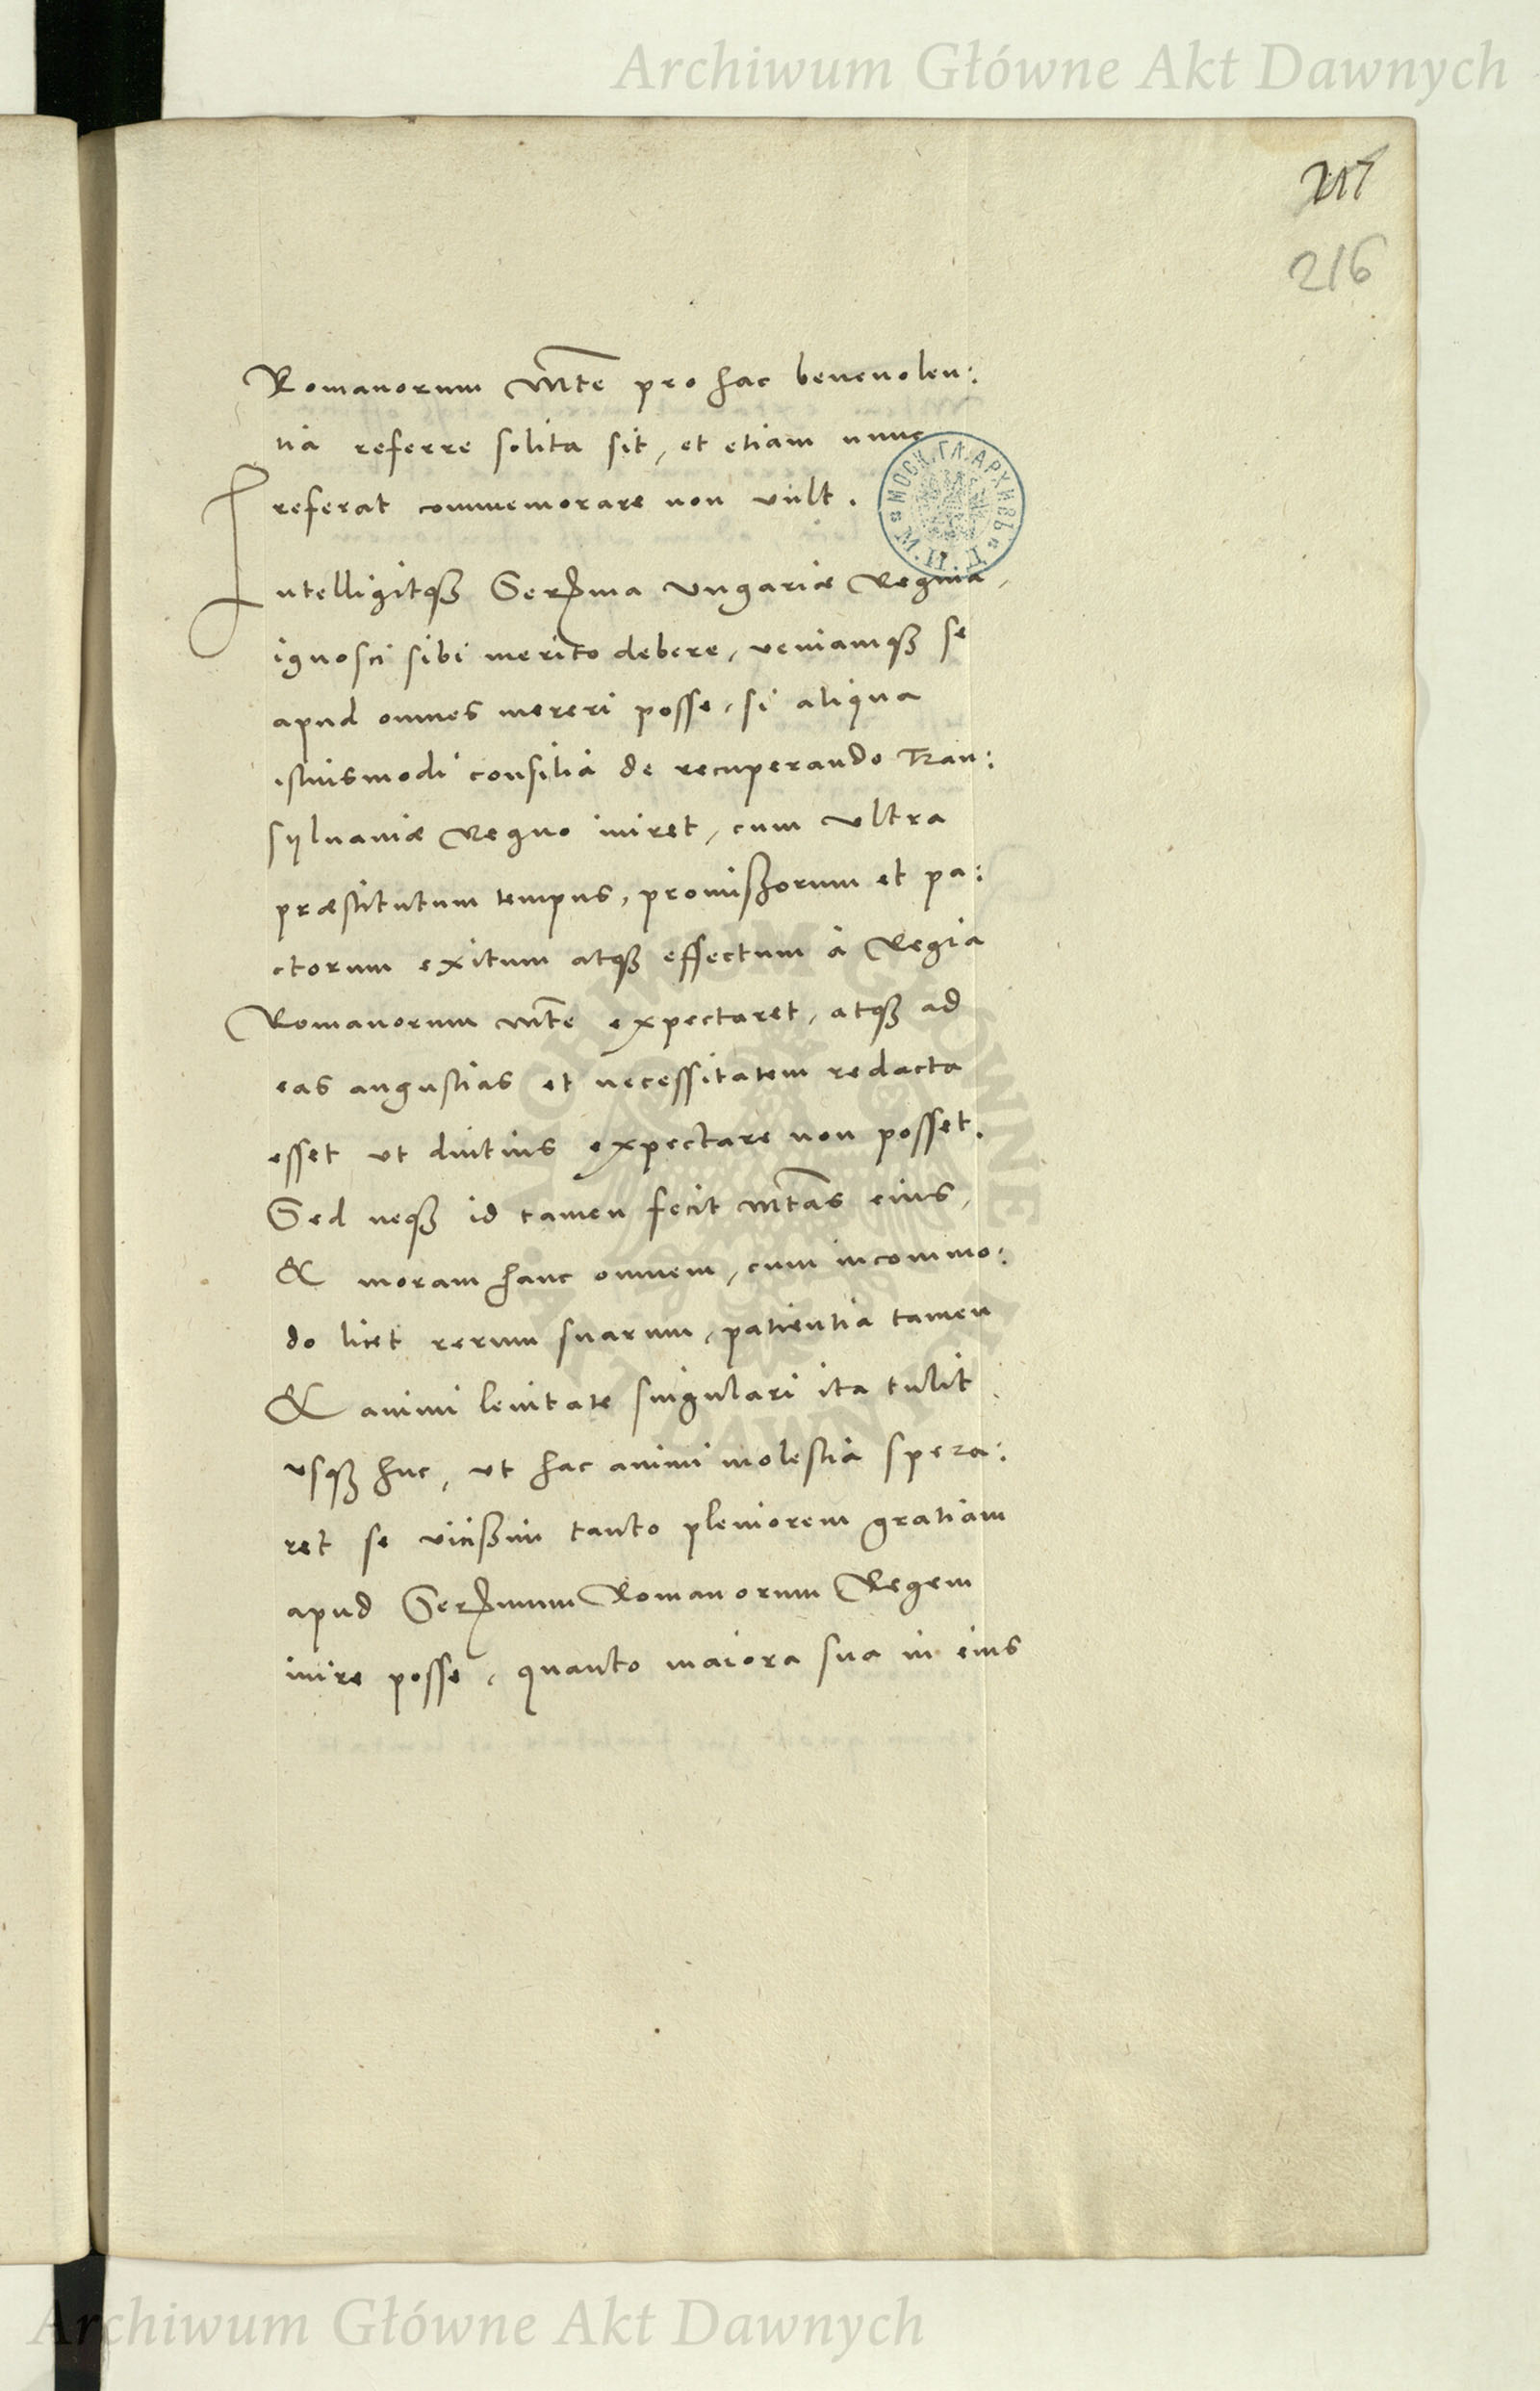 Archiwum Główne Akt Dawnych
216
Romanorum Mtẽ pro hac beneuolen:
tia referre solita sit, et etiam nunc
referat commemorare non vult.
МОСК. ГЛ. АРХИВЪ М. И. Д.
Intelligitqȝ Serma Vngariæ Regina,
ignosci sibi merito debere, veniamqȝ se
apud omnes mereri posse, si aliqua
istiusmodi consilia de recuperando Tran:
syluaniæ Regno iniret, cum vltra
præstitutum tempus, promissorum et pa:
ctorum exitum atqȝ effectum à Regia
Romanorum Mtẽ expectaret, atqȝ ad
eas angustias et necessitatem redacta
esset vt diutius expectare non posset.
Sed neqȝ id tamen fecit Mtãs eius,
& moram hanc omnem, cum incommo:
do licet rerum suarum, patientia tamen
& animi lenitate singulari ita tulit
vsqȝ huc, vt hac animi molestia spera:
ret se vicissim tanto pleniorem gratiam
apud Sermum Romanorum Regem
inire posse, quanto maiora sua in eius
ARCHIWUM GŁÓWNE AKT DAWNYCH
Archiwum Główne Akt Dawnych